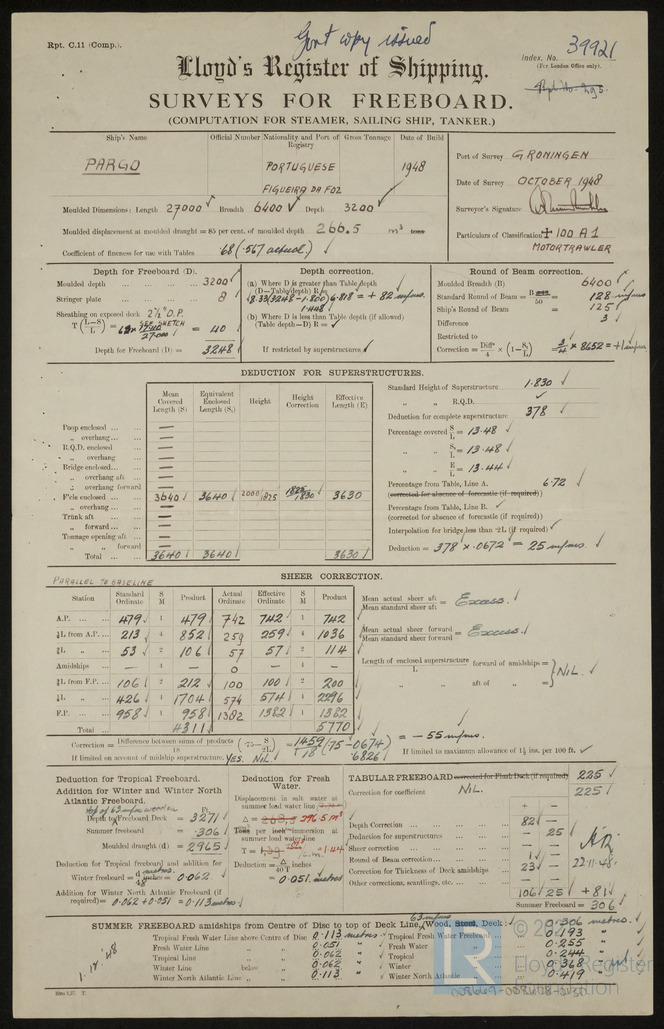 Rpt. C.11 (Comp.).
Govt copy issued
Index. No. 39921
(For London Office only).
Lloyd's Register of Shipping.
SURVEYS FOR FREEBOARD.
(COMPUTATION FOR STEAMER, SAILING SHIP, TANKER.)
Ship's Name Official Number Nationality and Port of Registry Gross Tonnage Date of Build
PARGO PORTUGUESE FIGUEIRA DA FOZ 1948
Port of Survey GRONINGEN
Date of Survey OCTOBER 1948
Surveyor's Signature
Particulars of Classification ✠ 100 A1
MOTORTRAWLER
Moulded Dimensions: Length 27000 Breadth 6400 Depth 3200
Moulded displacement at moulded draught = 85 per cent. of moulded depth 266.5 m³ tons
Coefficient of fineness for use with Tables .68 (.567 actual.)
Depth for Freeboard (D).
Moulded depth 3200
Stringer plate 8
Sheathing on exposed deck 2½" O.P.
T (L-S/L) = = 40
Depth for Freeboard (D) = 3248
Depth correction.
(a) Where D is greater than Table depth
(D-Table depth) R =
8.33(3248-1.800)6.818 = + 82 m/ms
(b) Where D is less than Table depth (if allowed)
(Table depth-D) R =
If restricted by superstructures
Round of Beam correction.
Moulded Breadth (B) 6400
Standard Round of Beam = B/50 = 128 m/ms
Ship's Round of Beam = 125
Difference 3
Restricted to
Correction = Diffce/4 × (1-S₁/L) = 3/4 × .8652 = +1 m/ms
DEDUCTION FOR SUPERSTRUCTURES.
Mean Covered Length (S) Equivalent Enclosed Length (S₁) Height Height Correction Effective Length (E)
Poop enclosed —
„ overhang —
R.Q.D. enclosed —
„ overhang —
Bridge enclosed —
„ overhang aft —
„ overhang forward
F'cle enclosed 3640 3640 2000/1825 1825/1830 3630
„ overhang —
Trunk aft —
„ forward —
Tonnage opening aft —
„ „ forward —
Total 3640 3640 3630
Standard Height of Superstructure 1.830
„ „ R.Q.D.
Deduction for complete superstructure 378
Percentage covered S/L = 13.48
„ „ S₁/L = 13.48
„ „ E/L = 13.44
Percentage from Table, Line A. 6.72
(corrected for absence of forecastle (if required))
Percentage from Table, Line B.
(corrected for absence of forecastle (if required))
Interpolation for bridge less than .2L (if required)
Deduction = 378 × .0672 = 25 m/ms
SHEER CORRECTION.
PARALLEL TO BASELINE
Station Standard Ordinate S M Product Actual Ordinate Effective Ordinate S M Product
A.P. 479 1 479 742 742 1 742
⅙L from A.P. 213 4 852 259 259 4 1036
⅓L „ 53 2 106 57 57 2 114
Amidships — 4 — 0 — 4 —
⅓L from F.P. 106 2 212 100 100 2 200
⅙L „ 426 4 1704 574 574 4 2296
F.P. 958 1 958 1382 1382 1 1382
Total 4311 5770
Mean actual sheer aft / Mean standard sheer aft = Excess.
Mean actual sheer forward / Mean standard sheer forward = Excess.
Length of enclosed superstructure / L forward of amidships =
„ aft of „ = } NIL.
Correction = Difference between sums of products / 18 (.75 - S/2L) = 1459/18 (.75-.0674) .6826 = -55 m/ms.
If limited on account of midship superstructure. YES. NIL
If limited to maximum allowance of 1½ ins. per 100 ft.
Deduction for Tropical Freeboard.
Addition for Winter and Winter North Atlantic Freeboard.
top of 63 m/ms wooden
Depth to Freeboard Deck = 3271
Summer freeboard = .306
Moulded draught (d) = 2965
Deduction for Tropical freeboard and addition for
Winter freeboard = d metres/48 = 0.062
Addition for Winter North Atlantic Freeboard (if required) = 0.062 + 0.051 = 0.113 metres
Deduction for Fresh Water.
Displacement in salt water at summer load water line
Δ = 263.5 296.5 m³
Tons per inch immersion at summer load water line
T = 1.39 1.44
Deduction = Δ/40T
= 0.051. metres
TABULAR FREEBOARD corrected for Flush Deck (if required) 225
Correction for coefficient NIL. 225
+ —
Depth Correction 82 —
Deduction for superstructures — 25
Sheer correction — —
Round of Beam correction 1 —
Correction for Thickness of Deck amidships 23 —
Other corrections, scantlings, etc. —
106 25 +81
Summer Freeboard = 306
22.11.48.
SUMMER FREEBOARD amidships from Centre of Disc to top of Deck Line, 63 m/ms Wood, Steel, Deck: 0.306 metres.
Tropical Fresh Water Line above Centre of Disc 0.113 metres Tropical Fresh Water Freeboard 0.193 „
Fresh Water Line „ „ 0.051 „ Fresh Water „ 0.255 „
Tropical Line „ „ 0.062 „ Tropical „ 0.244 „
Winter Line below „ 0.062 „ Winter „ 0.368 „
Winter North Atlantic Line „ „ 0.113 „ Winter North Atlantic „ 0.419 „
1.12.48
LR
Lloyd's Register